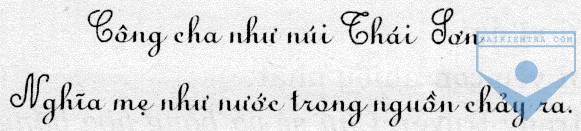 Công cha như núi Thái Sơn
Nghĩa mẹ như nước trong nguồn chảy ra.